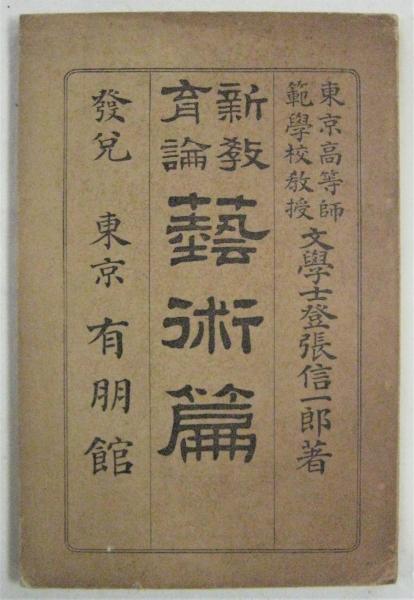 東京高等師
範學校教授
文學士登張信一郎著
新教
育論
藝術篇
發兌 東京 有朋館